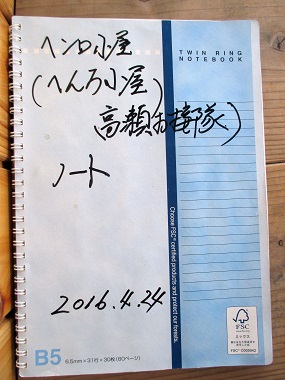 ヘンロ小屋
TWIN RING
NOTEBOOK
(へんろ小屋
高瀬お接隊)
ノート
Choose FSC® certified products and protect our forests.
2016.4.24
B5
6.5mm×31行×30枚(60ページ)
FSC
ミックス